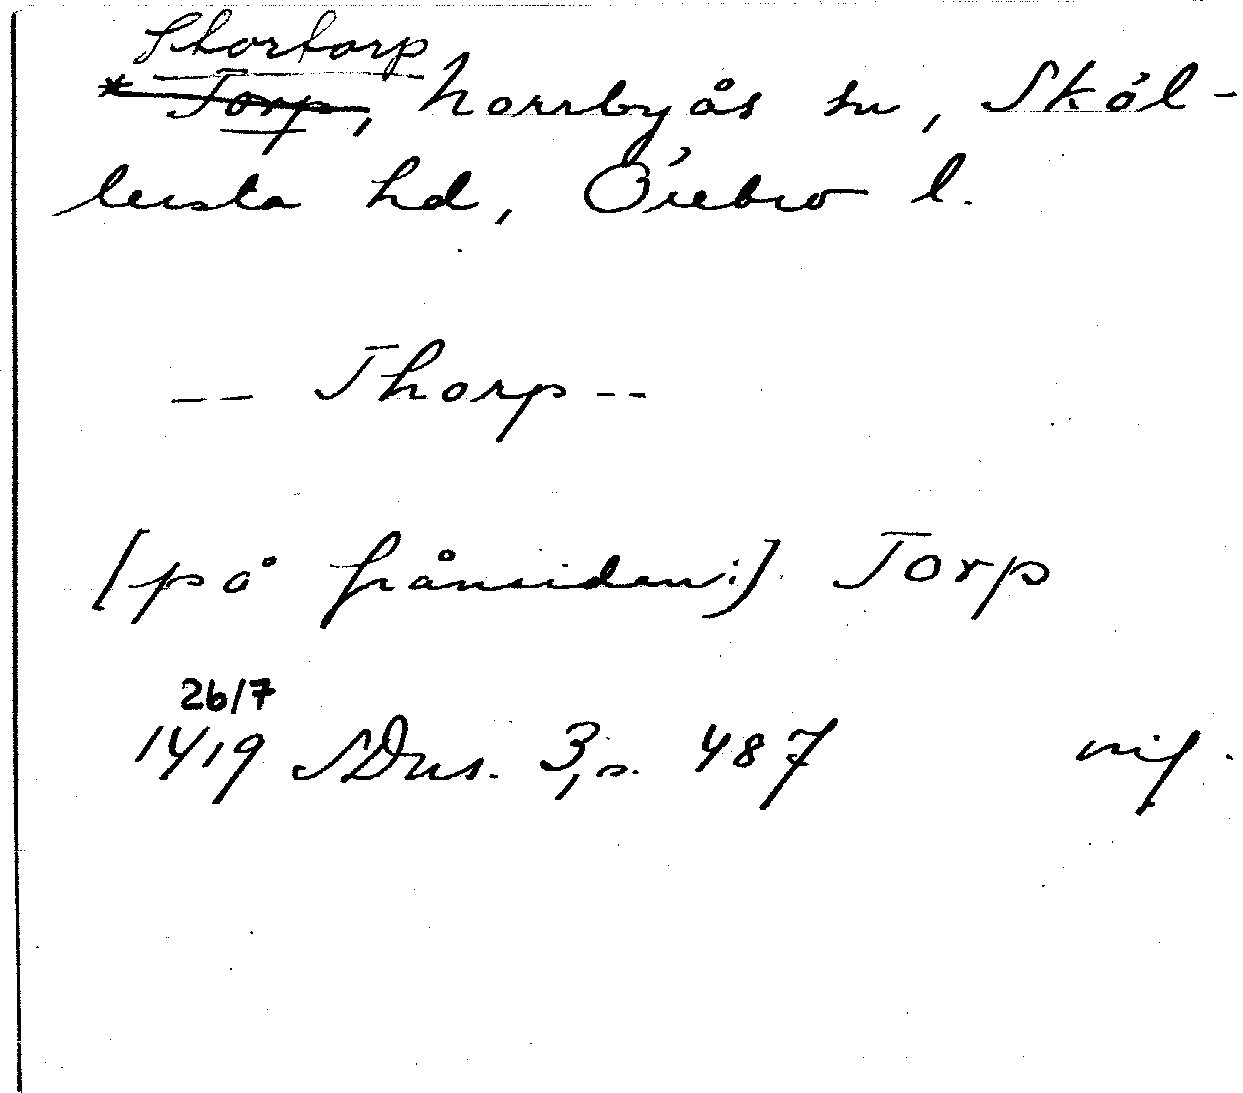 Stortorp
* Torp, Norrbyås sn, Sköl-
lersta hd, Örebro l.
-- Thorp --
[på frånsidan:] Torp
26/7
1419 SDns. 3, s. 487